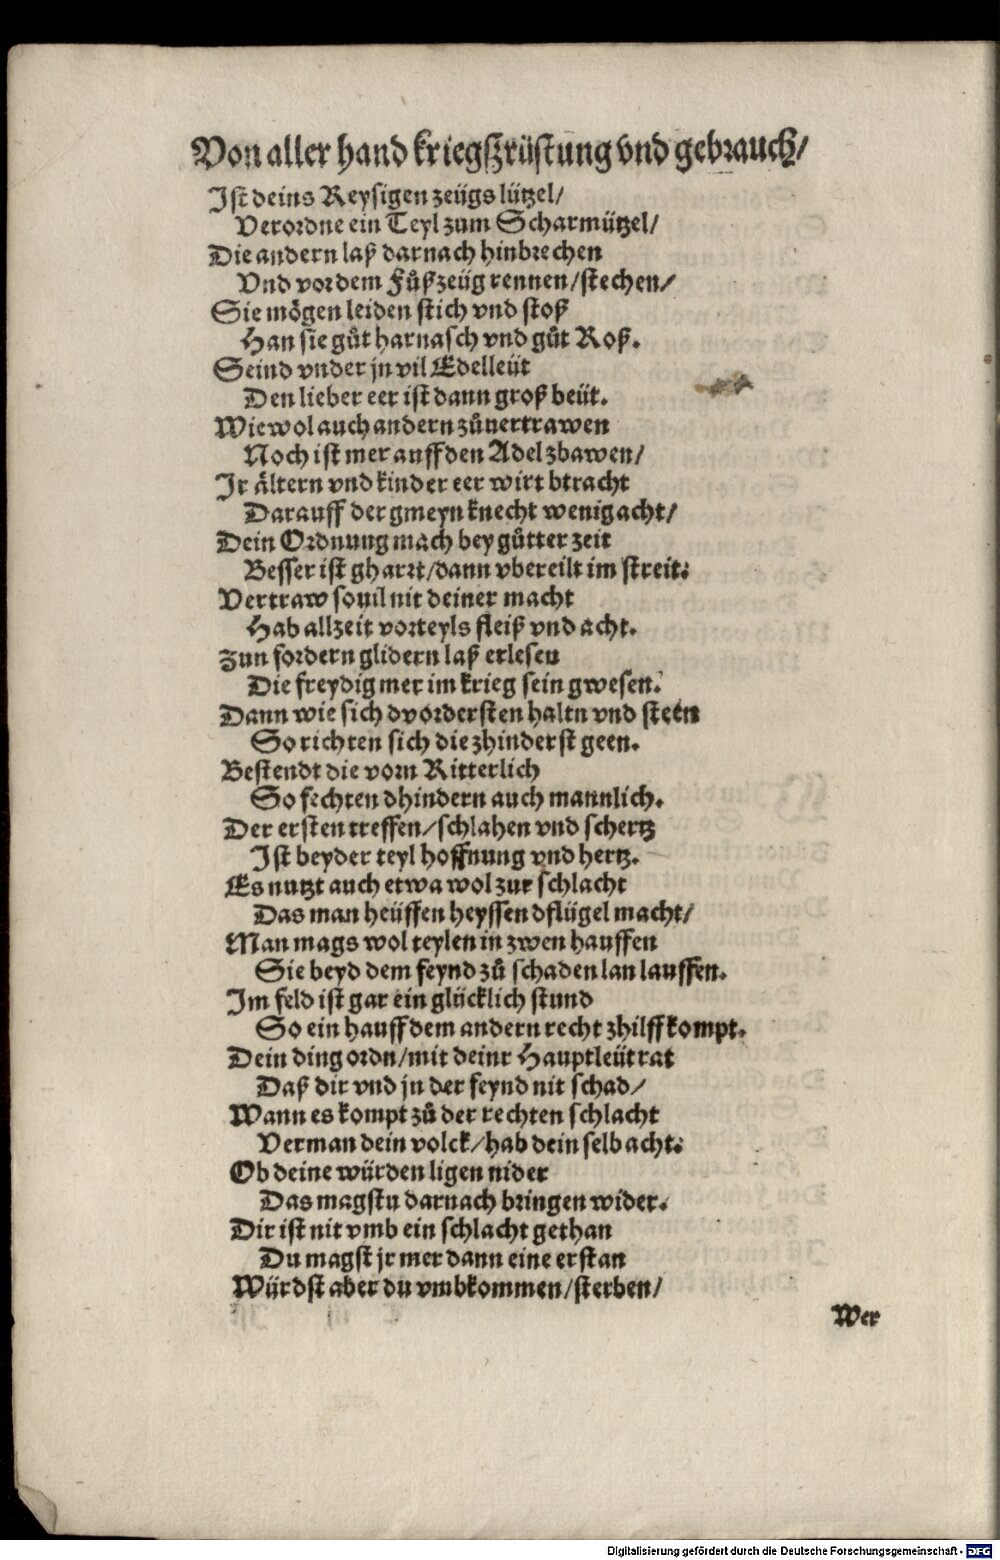 Von aller hand kriegßrüstung vnd gebrauch/
Ist deins Reysigen zeügs lützel/
Verordne ein Teyl zum Scharmützel/
Die andern laß darnach hinbrechen
Vnd vor dem Fůßzeüg rennen/stechen/
Sie mögen leiden stich vnd stoß
Han sie gůt harnasch vnd gůt Roß.
Seind vnder jn vil Edelleüt
Den lieber eer ist dann groß beüt.
Wiewol auch andern zůuertrawen
Noch ist mer auff den Adel zbawen/
Ir ältern vnd kinder eer wirt btracht
Darauff der gmeyn knecht wenig acht/
Dein Ordnung mach bey gůtter zeit
Besser ist gharrt/dann vbereilt im streit.
Vertraw souil nit deiner macht
Hab allzeit vorteyls fleiß vnd acht.
Zun fordern glidern laß erlesen
Die freydig mer im krieg sein gwesen.
Dann wie sich dvordersten haltn vnd steen
So richten sich die zhinderst geen.
Bestendt die vorn Ritterlich
So fechten dhindern auch mannlich.
Der ersten treffen/schlahen vnd schertz
Ist beyder teyl hoffnung vnd hertz.
Es nutzt auch etwa wol zur schlacht
Das man heüffen heyssen dflügel macht/
Man mags wol teylen in zwen hauffen
Sie beyd dem feynd zů schaden lan lauffen.
Im feld ist gar ein glücklich stund
So ein hauff dem andern recht zhilff kompt.
Dein ding ordn/mit deinr Hauptleüt rat
Daß dir vnd jn der feynd nit schad/
Wann es kompt zů der rechten schlacht
Verman dein volck/hab dein selb acht.
Ob deine würden ligen nider
Das magstu darnach bringen wider.
Dir ist nit vmb ein schlacht gethan
Du magst jr mer dann eine erstan
Würdst aber du vmbkommen/sterben/
Wer
Digitalisierung gefördert durch die Deutsche Forschungsgemeinschaft - DFG